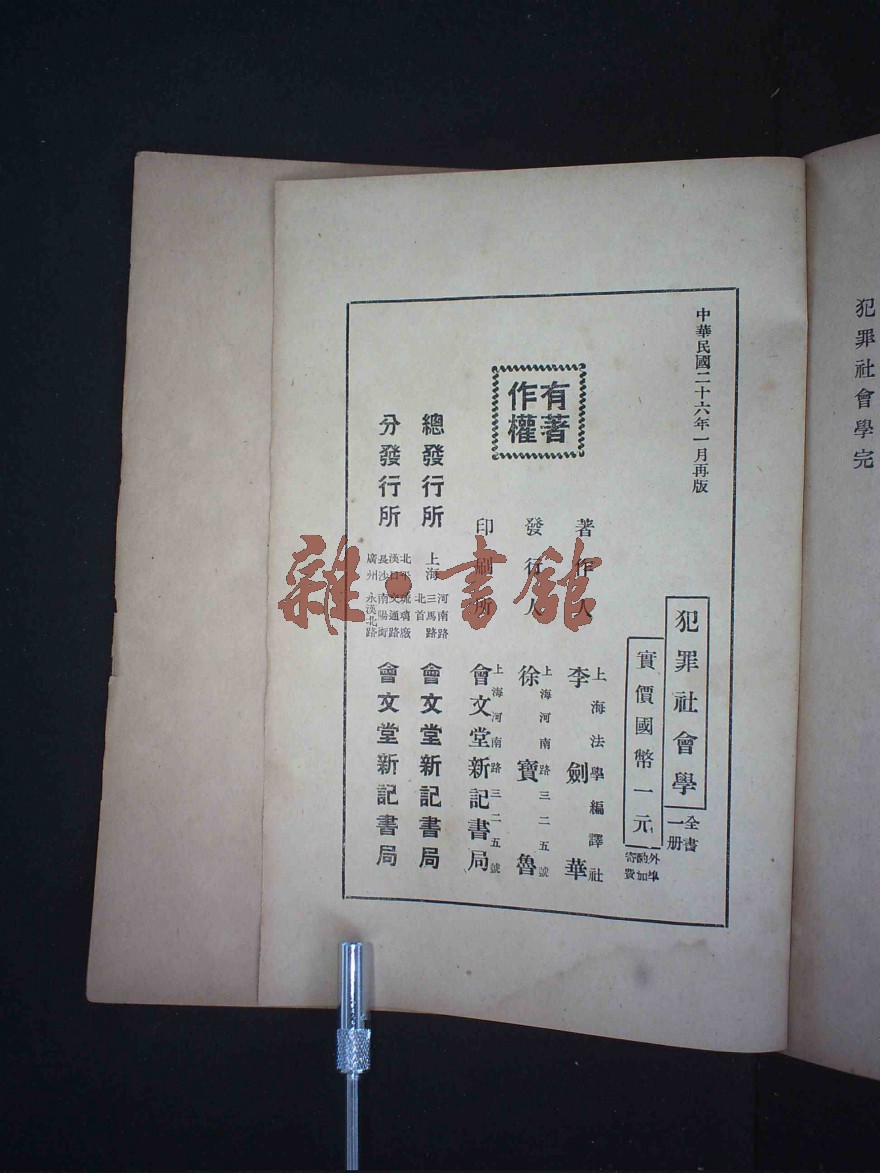 犯罪社會學完
中華民國二十六年一月再版
犯罪社會學
全書一册
實價國幣一元
外埠酌加寄費
著作人
上海法學編譯社
李劍華
發行人
上海河南路三二五號
徐寶魯
印刷所
上海河南路三二五號
會文堂新記書局
有著作權
總發行所
上海
河南路
三馬路
北首
會文堂新記書局
分發行所
北平 琉璃廠
漢口 交通路
長沙 南陽街
廣州 永漢北路
會文堂新記書局
雜·書館